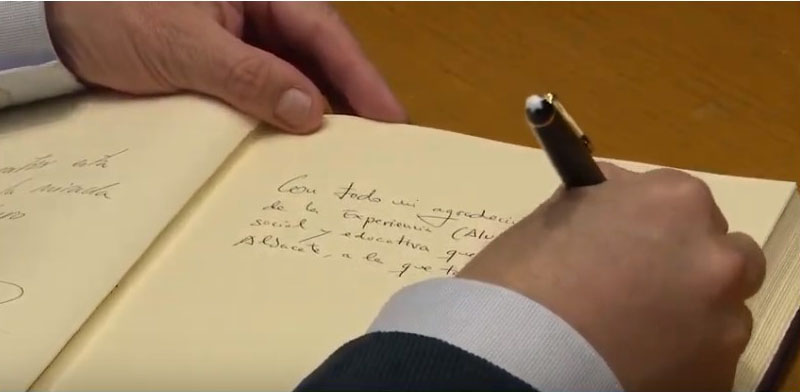 está
la mirada
Con todo mi agradeci
de la Experiencia (Alu
social y educativa que
Albacete, a la que t